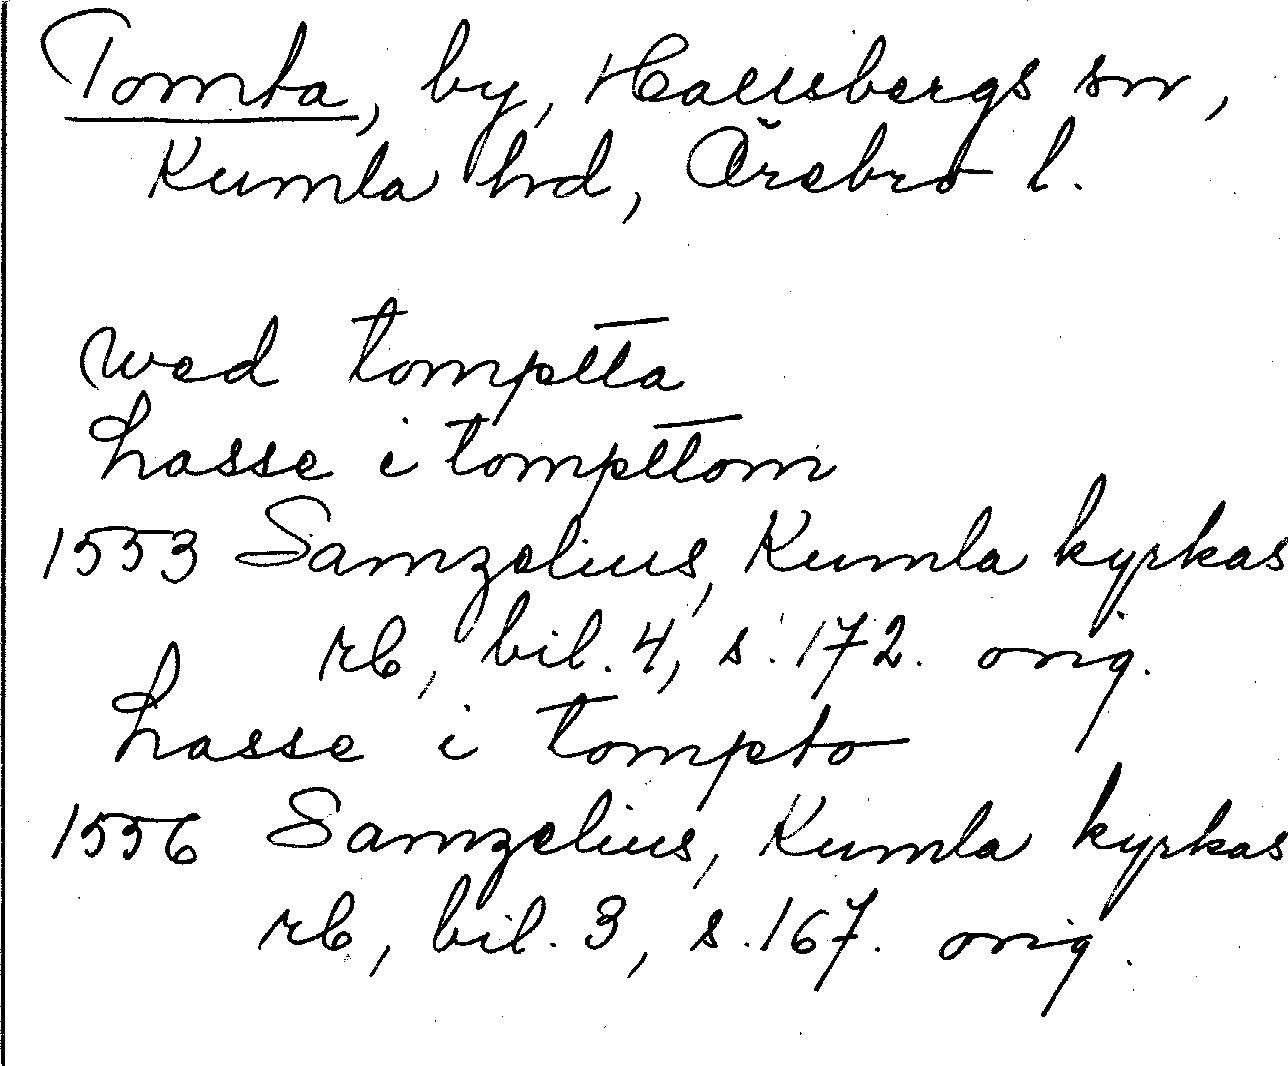 Tomta, by, Hallsbergs sn,
Kumla hd, Örebro l.
wed tomptta
Lasse i tompttom
1553 Samzelius, Kumla kyrkas
rb, bil. 4, s. 172. orig.
Lasse i tompto
1556 Samzelius, Kumla kyrkas
rb, bil. 3, s. 167. orig.